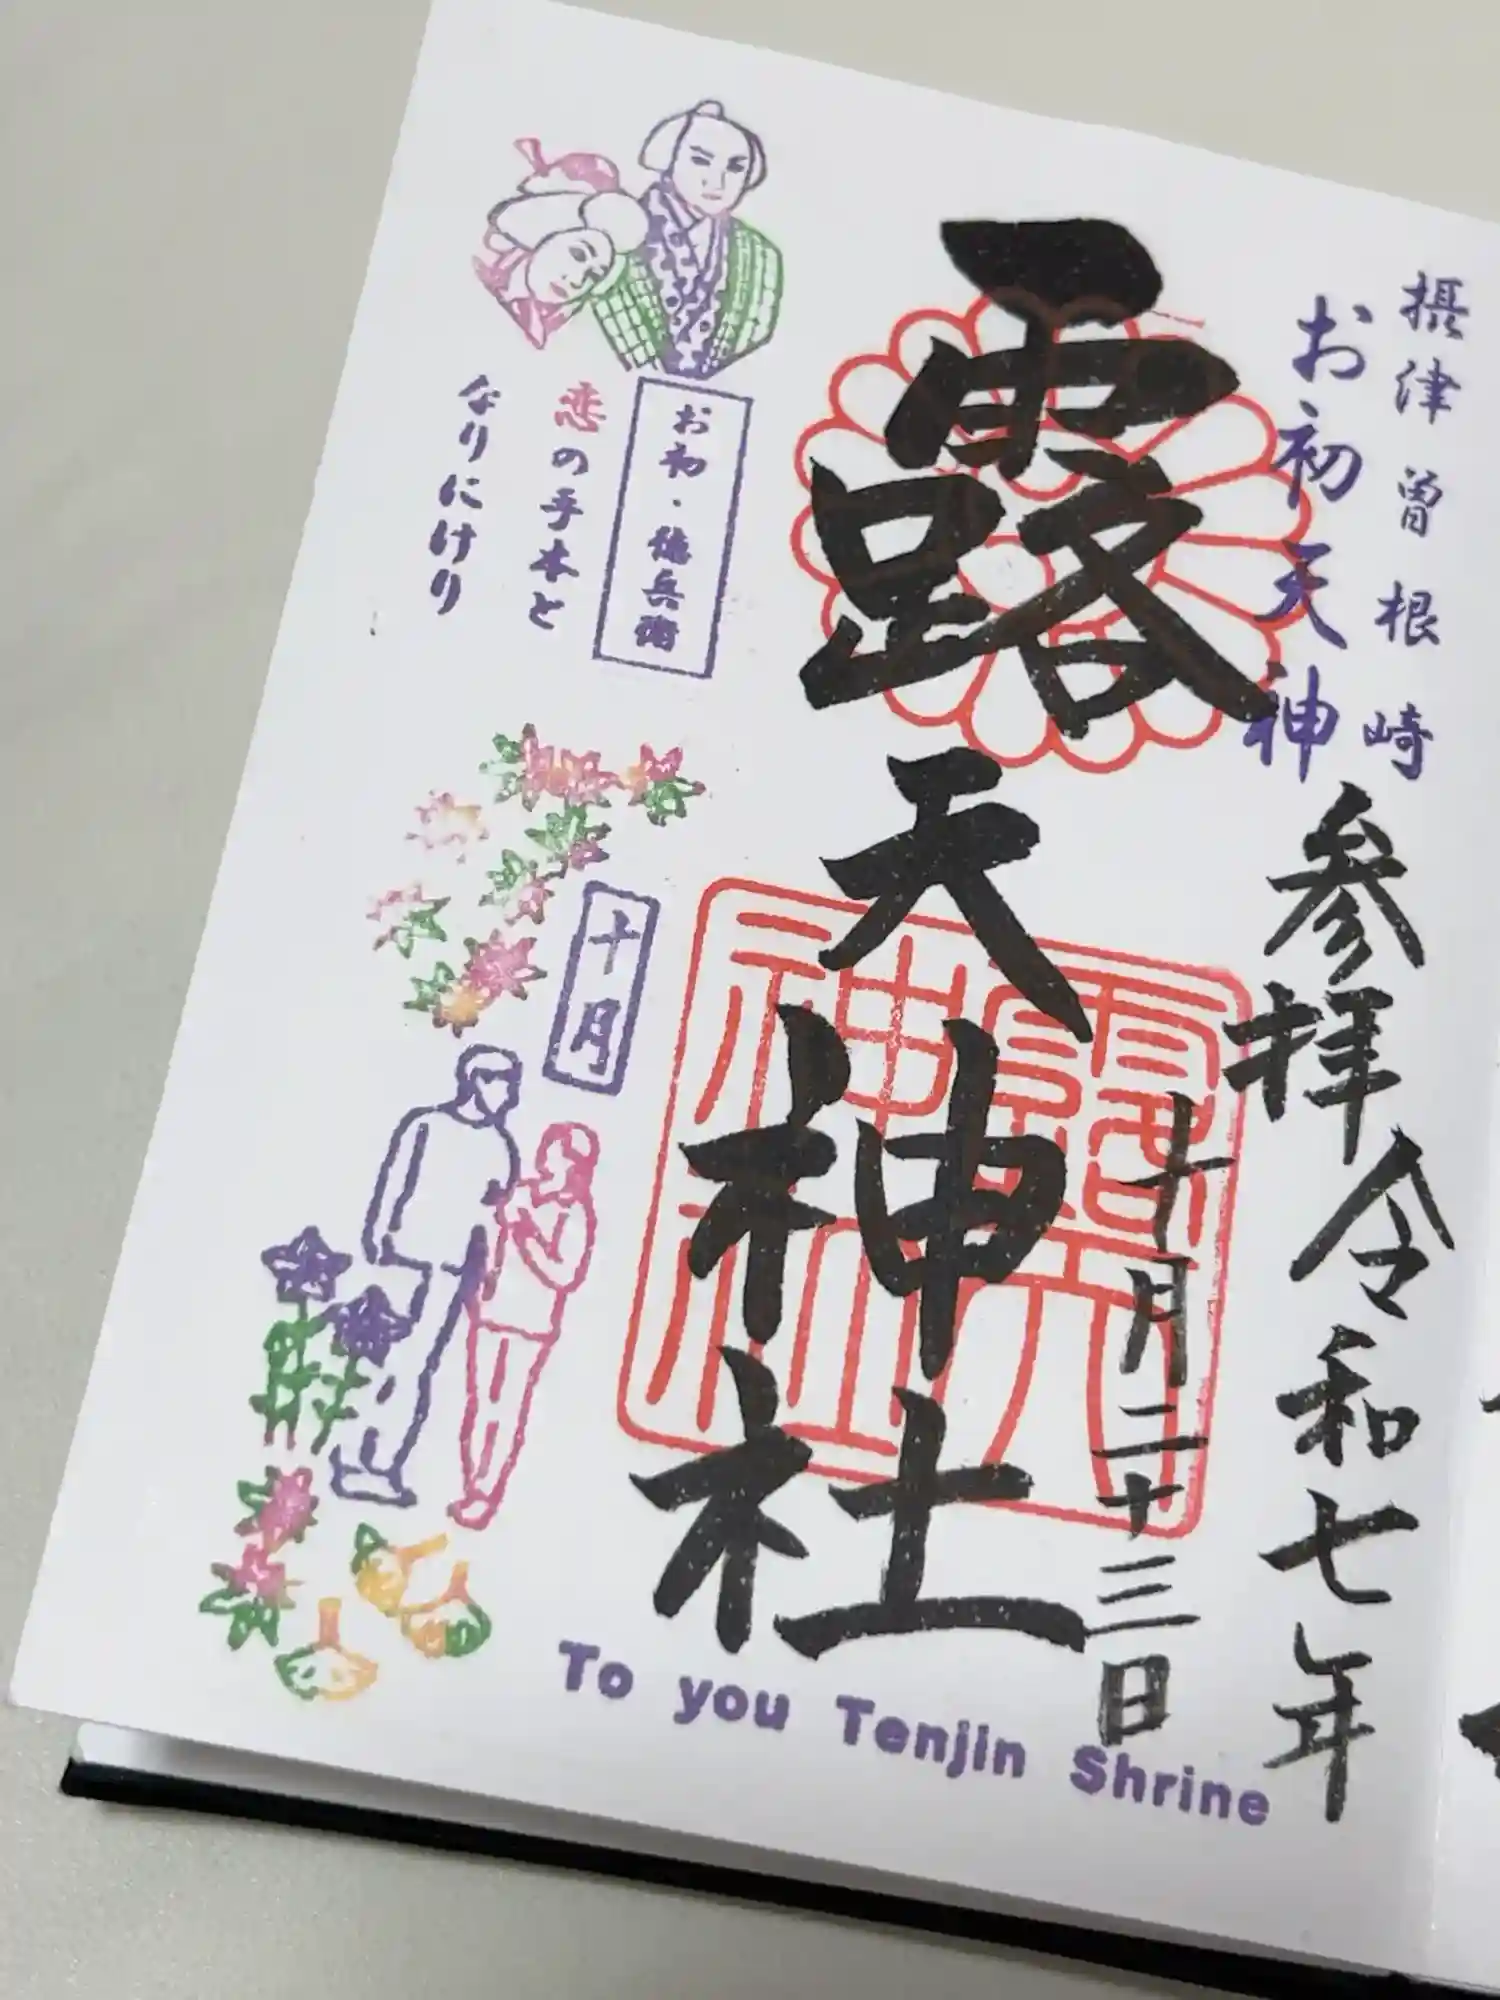 摂津曽根崎
お初天神
参拝 令和七年
十月二十三日
露天神社
露天
神社
お初・徳兵衛
恋の手本と
なりにけり
十月
To you Tenjin Shrine